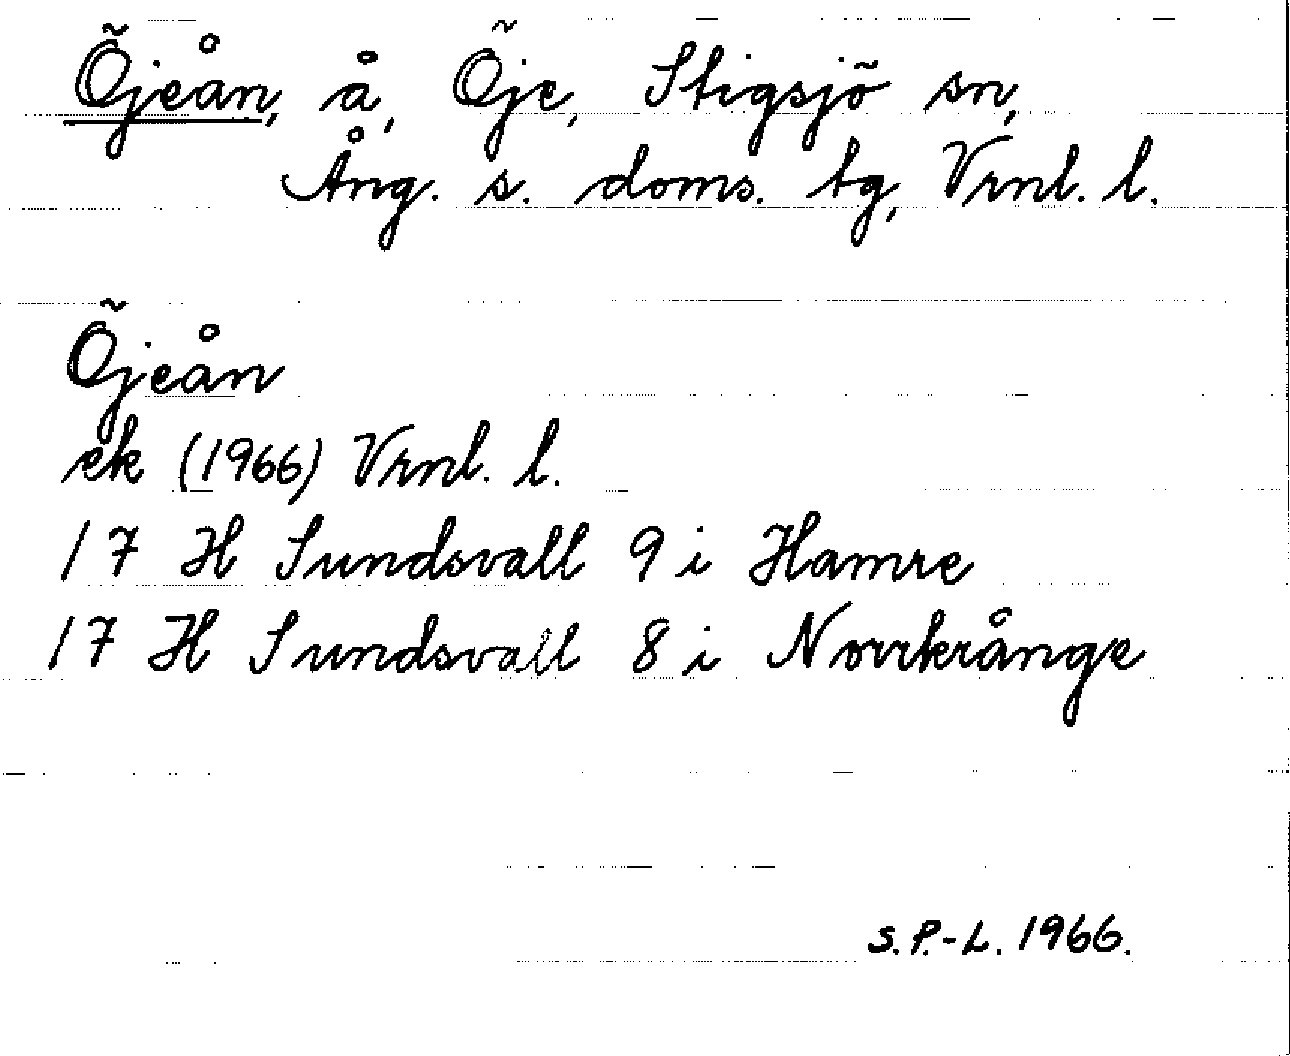 Öjeån, å, Öje, Stigsjö sn,
Ång. s. doms. tg, Vrnl. l.
Öjeån
ek (1966) Vrnl. l.
17 H Sundsvall 9 i Hamre
17 H Sundsvall 8 i Norrkrånge
S. P.-L. 1966.